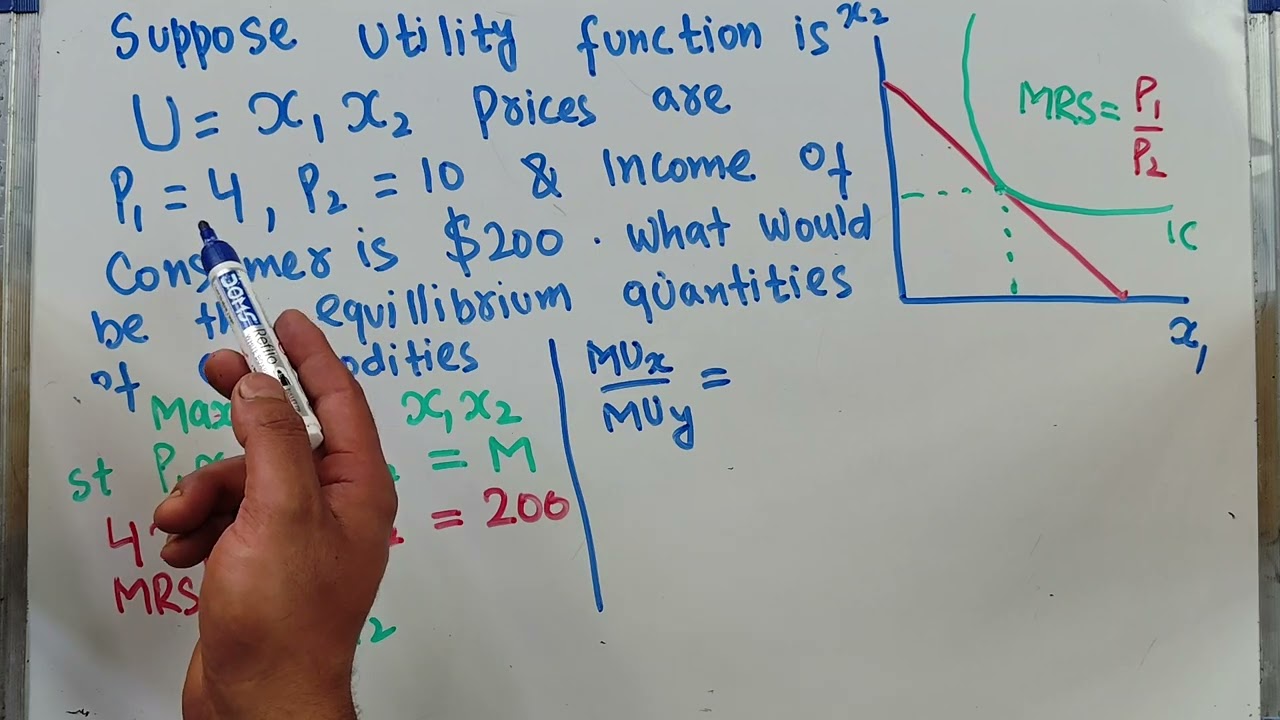 Suppose utility function is
U = x₁ x₂ Prices are
P₁ = 4, P₂ = 10 & Income of
Consumer is $200. what would
be the equillibrium quantities
of commodities
Max x₁ x₂
st P₁ = M
4 = 200
MRS
x₂
MRS = P₁
P₂
IC
x₁
MUx
MUy =
Reflo